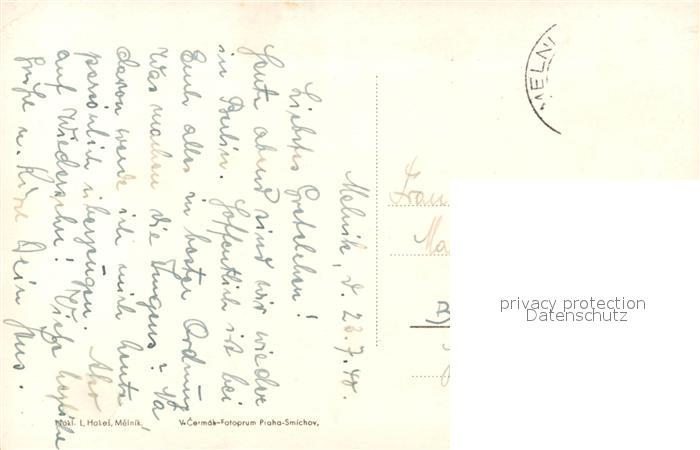 Melnik, d. 23.7.40.
Liebstes Gretelchen!
Heute abend sind wir wieder
in Berlin. Hoffentlich ist bei
Euch alles in bester Ordnung
Was machen die Jungens? Na
davon werde ich mich heute
persönlich überzeugen. Also
auf Wiedersehn! Viele herzliche
Grüße u. Küsse Dein Hans.
Frau
Ma
MELNÍ
Nákl. L. Hakeš, Mělník.
V. Čermák-Fotoprum Praha-Smíchov.
privacy protection
Datenschutz